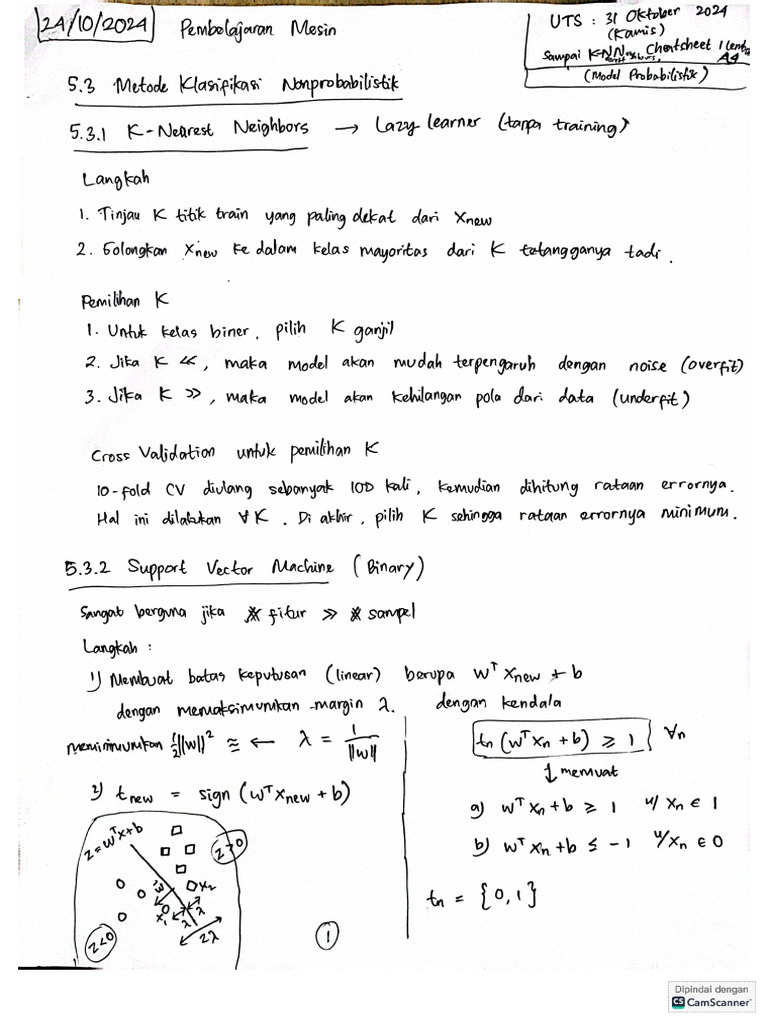 24/10/2024 Pembelajaran Mesin
UTS : 31 Oktober 2024
(Kamis)
Sampai K-NN Cheatsheet 1 lembar A4
(Model Probabilistik)
5.3 Metode Klasifikasi Nonprobabilistik
5.3.1 K-Nearest Neighbors → Lazy learner (tanpa training)
Langkah
1. Tinjau K titik train yang paling dekat dari Xnew
2. Golongkan Xnew ke dalam kelas mayoritas dari K tetangganya tadi.
Pemilihan K
1. Untuk kelas biner, pilih K ganjil
2. Jika K <<, maka model akan mudah terpengaruh dengan noise (overfit)
3. Jika K >>, maka model akan kehilangan pola dari data (underfit)
Cross Validation untuk pemilihan K
10-fold CV diulang sebanyak 100 kali, kemudian dihitung rataan errornya.
Hal ini dilakukan ∀K. Di akhir, pilih K sehingga rataan errornya minimum.
5.3.2 Support Vector Machine (Binary)
Sangat berguna jika # fitur >> # sampel
Langkah :
1) Membuat batas keputusan (linear) berupa wᵀ Xnew + b
dengan memaksimumkan margin λ. dengan kendala
meminimumkan ½||w||² ≈ ← λ = 1/||w||
tn (wᵀ Xn + b) ≥ 1 ∀n
↓ memuat
a) wᵀ Xn + b ≥ 1 u/ Xn ∈ 1
b) wᵀ Xn + b ≤ -1 u/ Xn ∈ 0
tn = {0, 1}
2) tnew = sign (wᵀ Xnew + b)
z = wᵀx+b
z>0
x₂
w
x₁
λ λ
λ
2λ
z<0
1
Dipindai dengan
CS CamScanner